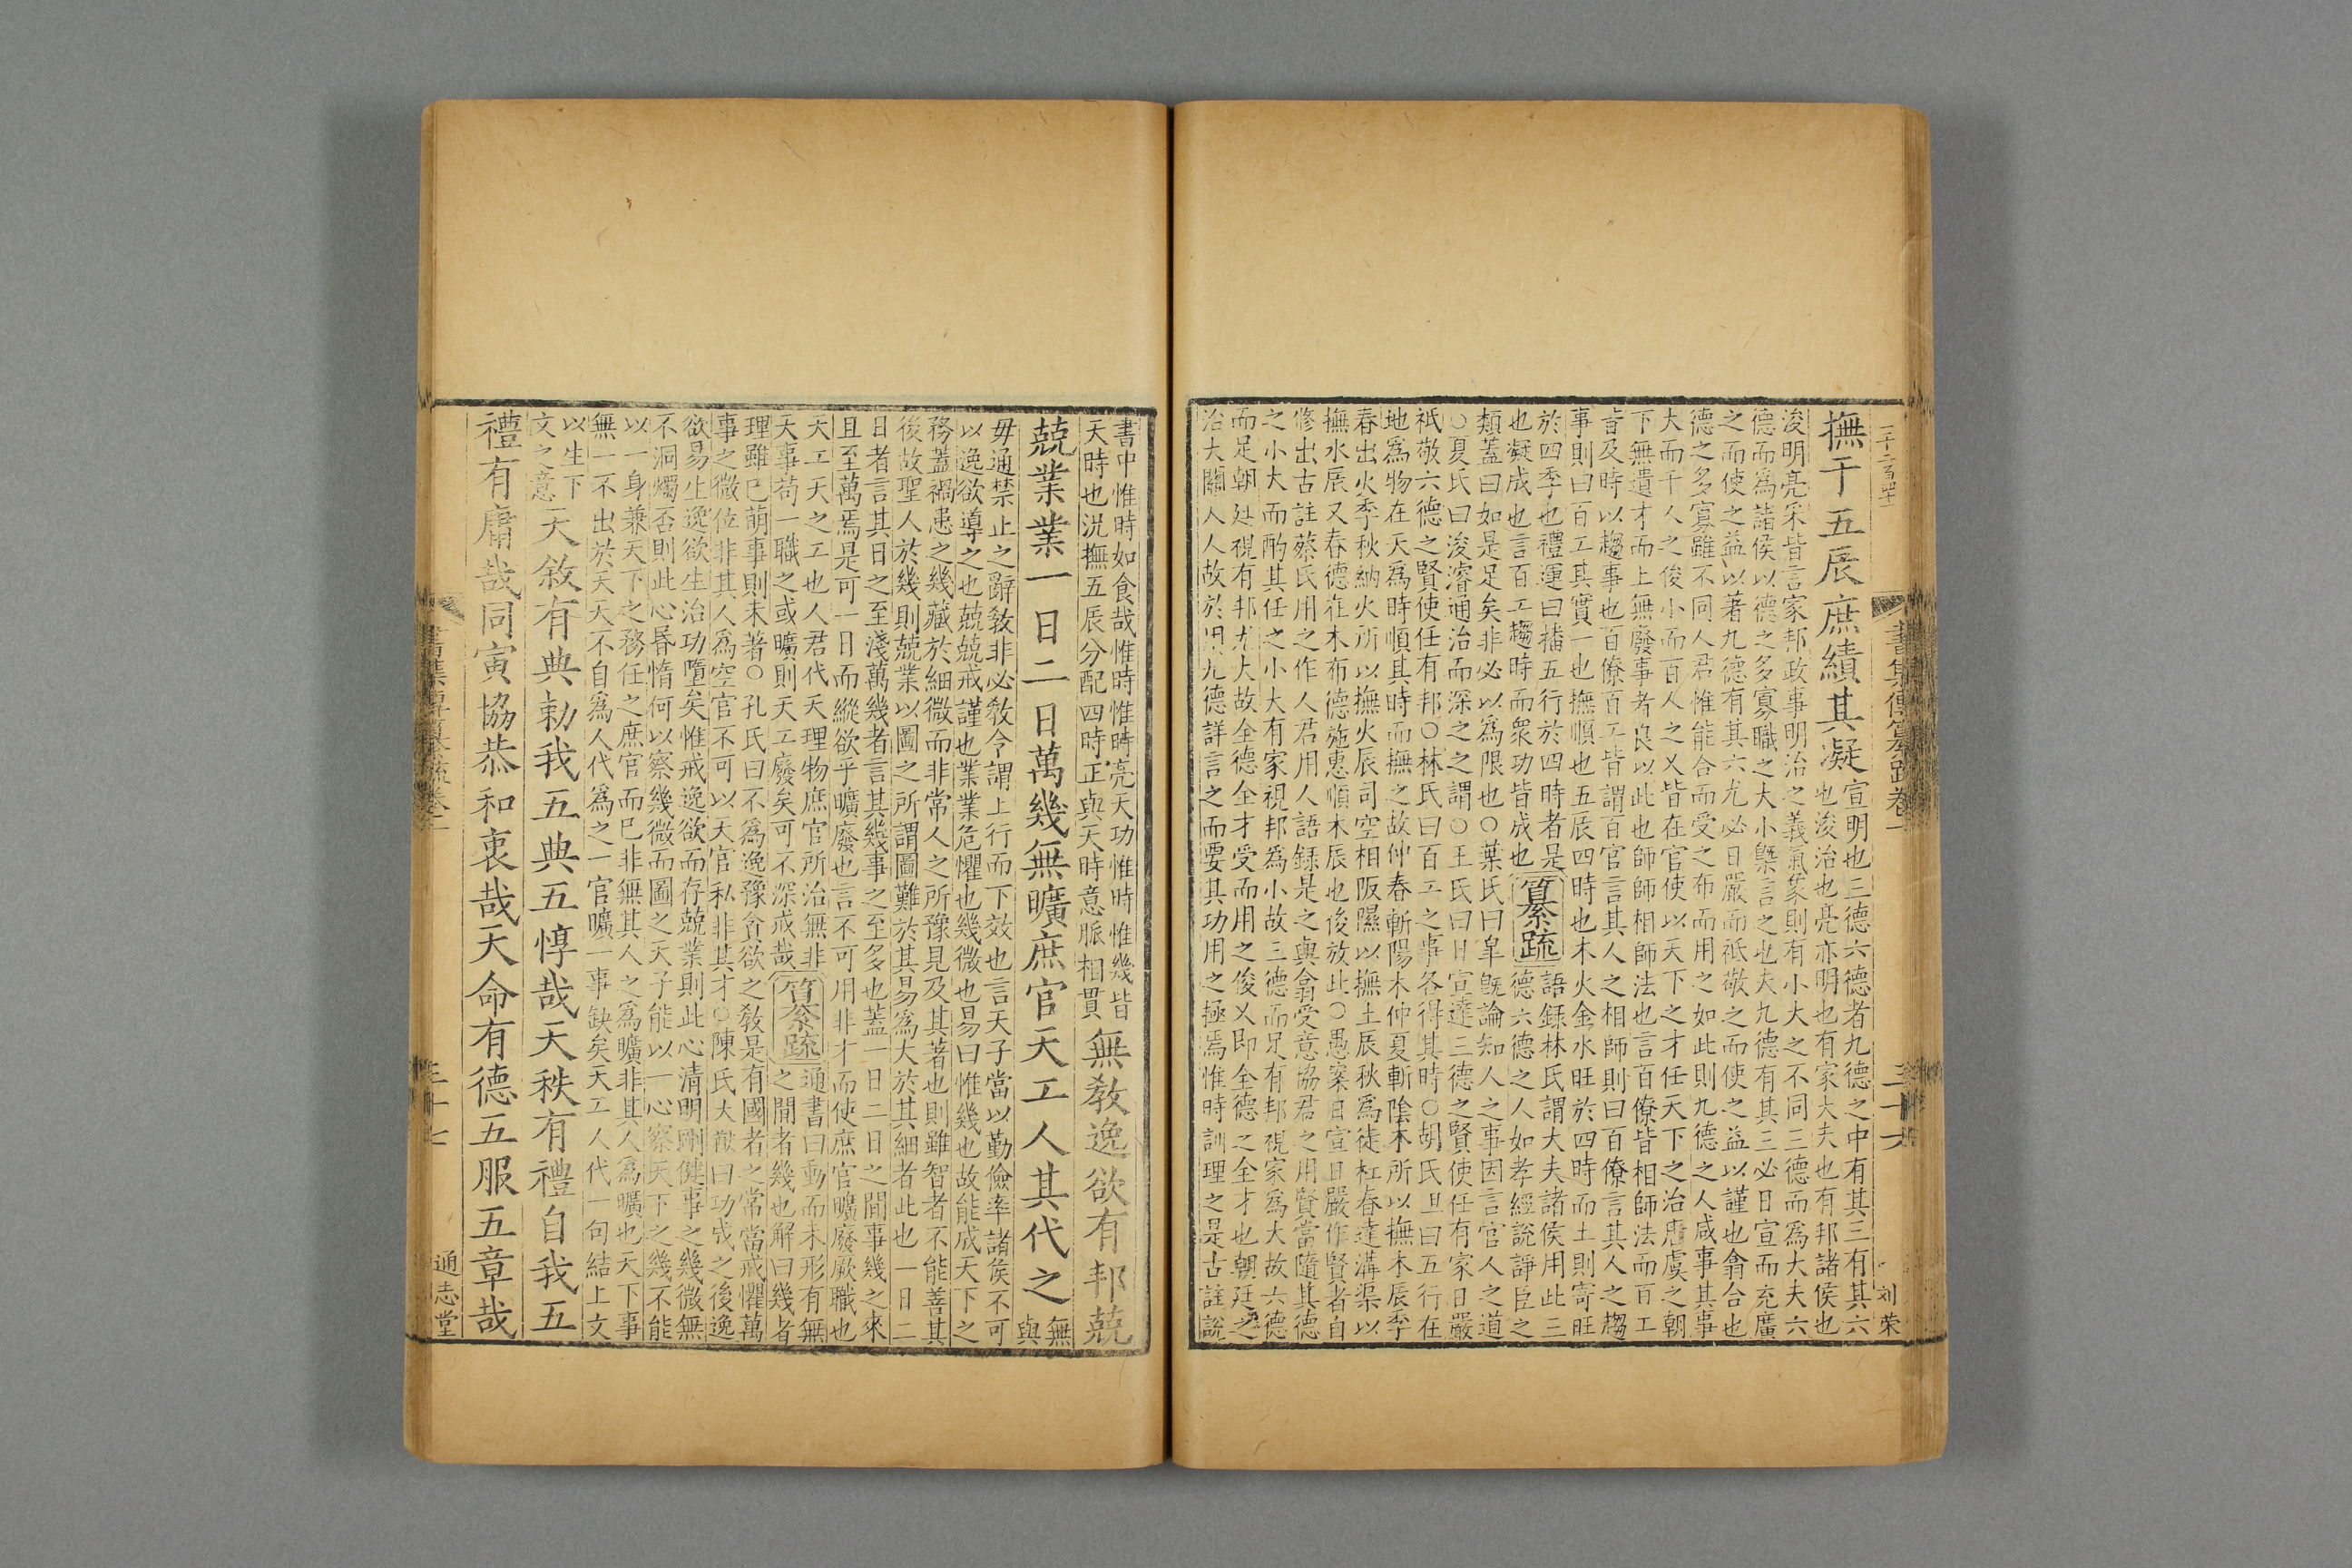 書集傳纂疏卷一
三十六
刘荣
撫于五辰庶績其凝
宣明也三德六德者九德之中有其三有其六
也浚治也亮亦明也有家大夫也有邦諸侯也
浚明亮采皆言家邦政事明治之義氣象則有小大之不同三德而為大夫六
德而為諸侯以德之多寡職之大小槩言之也夫九德有其三必日宣而充廣
之而使之益以著九德有其六尤必日嚴而祗敬之而使之益以謹也翕合也
德之多寡雖不同人君惟能合而受之布而用之如此則九德之人咸事其事
大而千人之俊小而百人之乂皆在官使以天下之才任天下之治唐虞之朝
下無遺才而上無廢事者良以此也師師相師法也言百僚皆相師法而百工
皆及時以趨事也百僚百工皆謂百官言其人之相師則曰百僚言其人之趨
事則曰百工其實一也撫順也五辰四時也木火金水旺於四時而土則寄旺
於四季也禮運曰播五行於四時者是
也凝成也言百工趨時而衆功皆成也
纂疏
語録林氏謂大夫諸侯用此三
德六德之人如孝經說諍臣之
類蓋曰如是足矣非必以為限也○葉氏曰皐既論知人之事因言官人之道
○夏氏曰浚濬通治而深之之謂○王氏曰日宣達三德之賢使任有家日嚴
祇敬六德之賢使任有邦○林氏曰百工之事各得其時○胡氏旦曰五行在
地為物在天為時順其時而撫之故仲春斬陽木仲夏斬陰木所以撫木辰季
春出火季秋納火所以撫火辰司空相阪隰以撫土辰秋為徒杠春達溝渠以
撫水辰又春德在木布德施惠順木辰也後放此○愚案日宣日嚴作賢者自
修出古註蔡氏用之作人君用人語録是之與翕受意協君之用賢當隨其德
之小大而酌其任之小大有家視邦為小故三德而足有邦視家為大故六德
而足朝廷視有邦尤大故全德全才受而用之俊乂即全德之全才也朝廷之
治大關人人故於九德詳言之而要其功用之極焉惟時訓理之是古註說
書中惟時如食哉惟時惟時亮天功惟時惟幾皆
天時也況撫五辰分配四時正與天時意脈相貫
無敎逸欲有邦兢
兢業業一日二日萬幾無曠庶官天工人其代之
無
與
毋通禁止之辭敎非必敎令謂上行而下效也言天子當以勤儉率諸侯不可
以逸欲導之也兢兢戒謹也業業危懼也幾微也易曰惟幾也故能成天下之
務蓋禍患之幾藏於細微而非常人之所豫見及其著也則雖智者不能善其
後故聖人於幾則兢業以圖之所謂圖難於其易為大於其細者此也一日二
日者言其日之至淺萬幾者言其幾事之至多也蓋一日二日之間事幾之來
且至萬焉是可一日而縱欲乎曠廢也言不可用非才而使庶官曠廢厥職也
天工天之工也人君代天理物庶官所治無非
天事苟一職之或曠則天工廢矣可不深戒哉
纂疏
通書曰動而未形有無
之間者幾也解曰幾者
理雖已萌事則未著○孔氏曰不為逸豫貪欲之敎是有國者之常當戒懼萬
事之微位非其人為空官不可以天官私非其才○陳氏大猷曰功成之後逸
欲易生逸欲生治功墮矣惟戒逸欲而存兢業則此心清明剛健事之幾微無
不洞燭否則此心昏惰何以察幾微而圖之天子能以一心察天下之幾不能
以一身兼天下之務任之庶官而已非無其人之為曠非其人為曠也天下事
無一不出於天天不自為人代為之一官曠一事缺矣天工人代一句結上文
以生下
文之意
天敘有典勑我五典五惇哉天秩有禮自我五
禮有庸哉同寅協恭和衷哉天命有德五服五章哉
書集傳纂疏卷一
三十七
通志堂